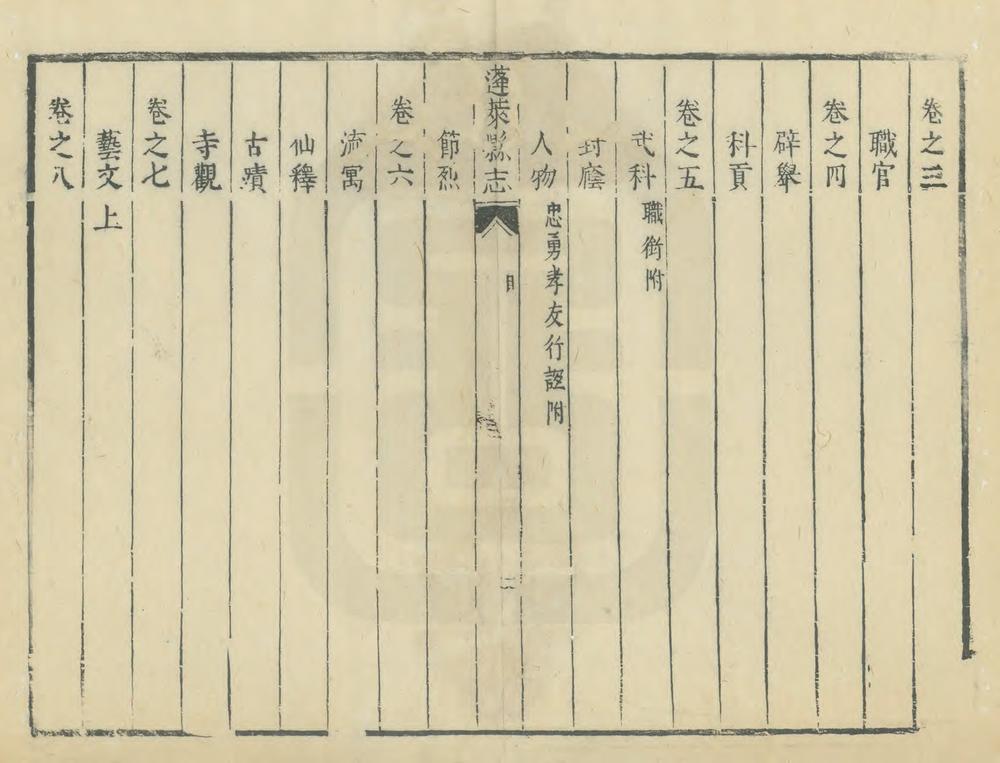 卷之三
職官
卷之四
辟舉
科貢
卷之五
武科 職銜附
封廕
人物 忠勇孝友行誼附
蓬萊縣志 目 二
節烈
卷之六
流寓
仙釋
古蹟
寺觀
卷之七
藝文上
卷之八